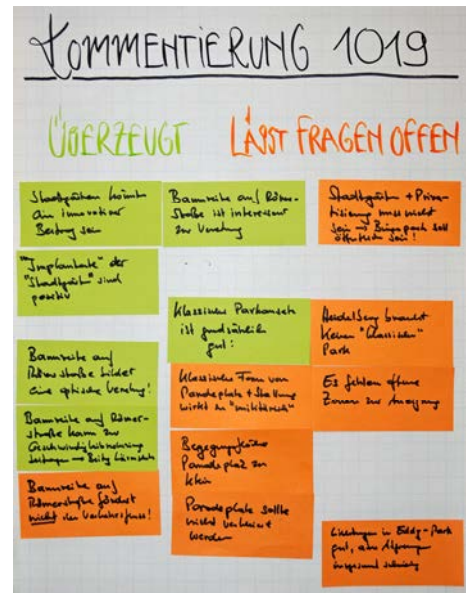 KOMMENTIERUNG 1019
ÜBERZEUGT
LÄSST FRAGEN OFFEN
Stadtgärten könnten
ein innovativer
Beitrag sein
"Implantate" der
"Stadtgärten" sind
positiv
Baumreihe auf
Römerstraße bildet
eine optische
Baumreihe auf Römer-
straße kann zur
Baumreihe auf
Römerstraße fördert
nicht den Verkehrsfluss!
Baumreihe auf Römer-
straße ist interessant
zur
Klassischer Parkansatz
ist grundsätzlich
gut!
Klassische Form von
Paradeplatz + Stallung
wirkt zu "militärisch"
Begegnungsfläche
Paradeplatz zu
klein
Paradeplatz sollte
nicht verkleinert
werden
Stadtgärten + Priva-
tisierung muss nicht
sein → Bürgerpark soll
öffentlich sein!
Heidelberg braucht
keinen "klassischen"
Park
Es fehlen offene
Zonen zur Aneignung
in Eddy-Park
gut, aber
insgesamt schwierig